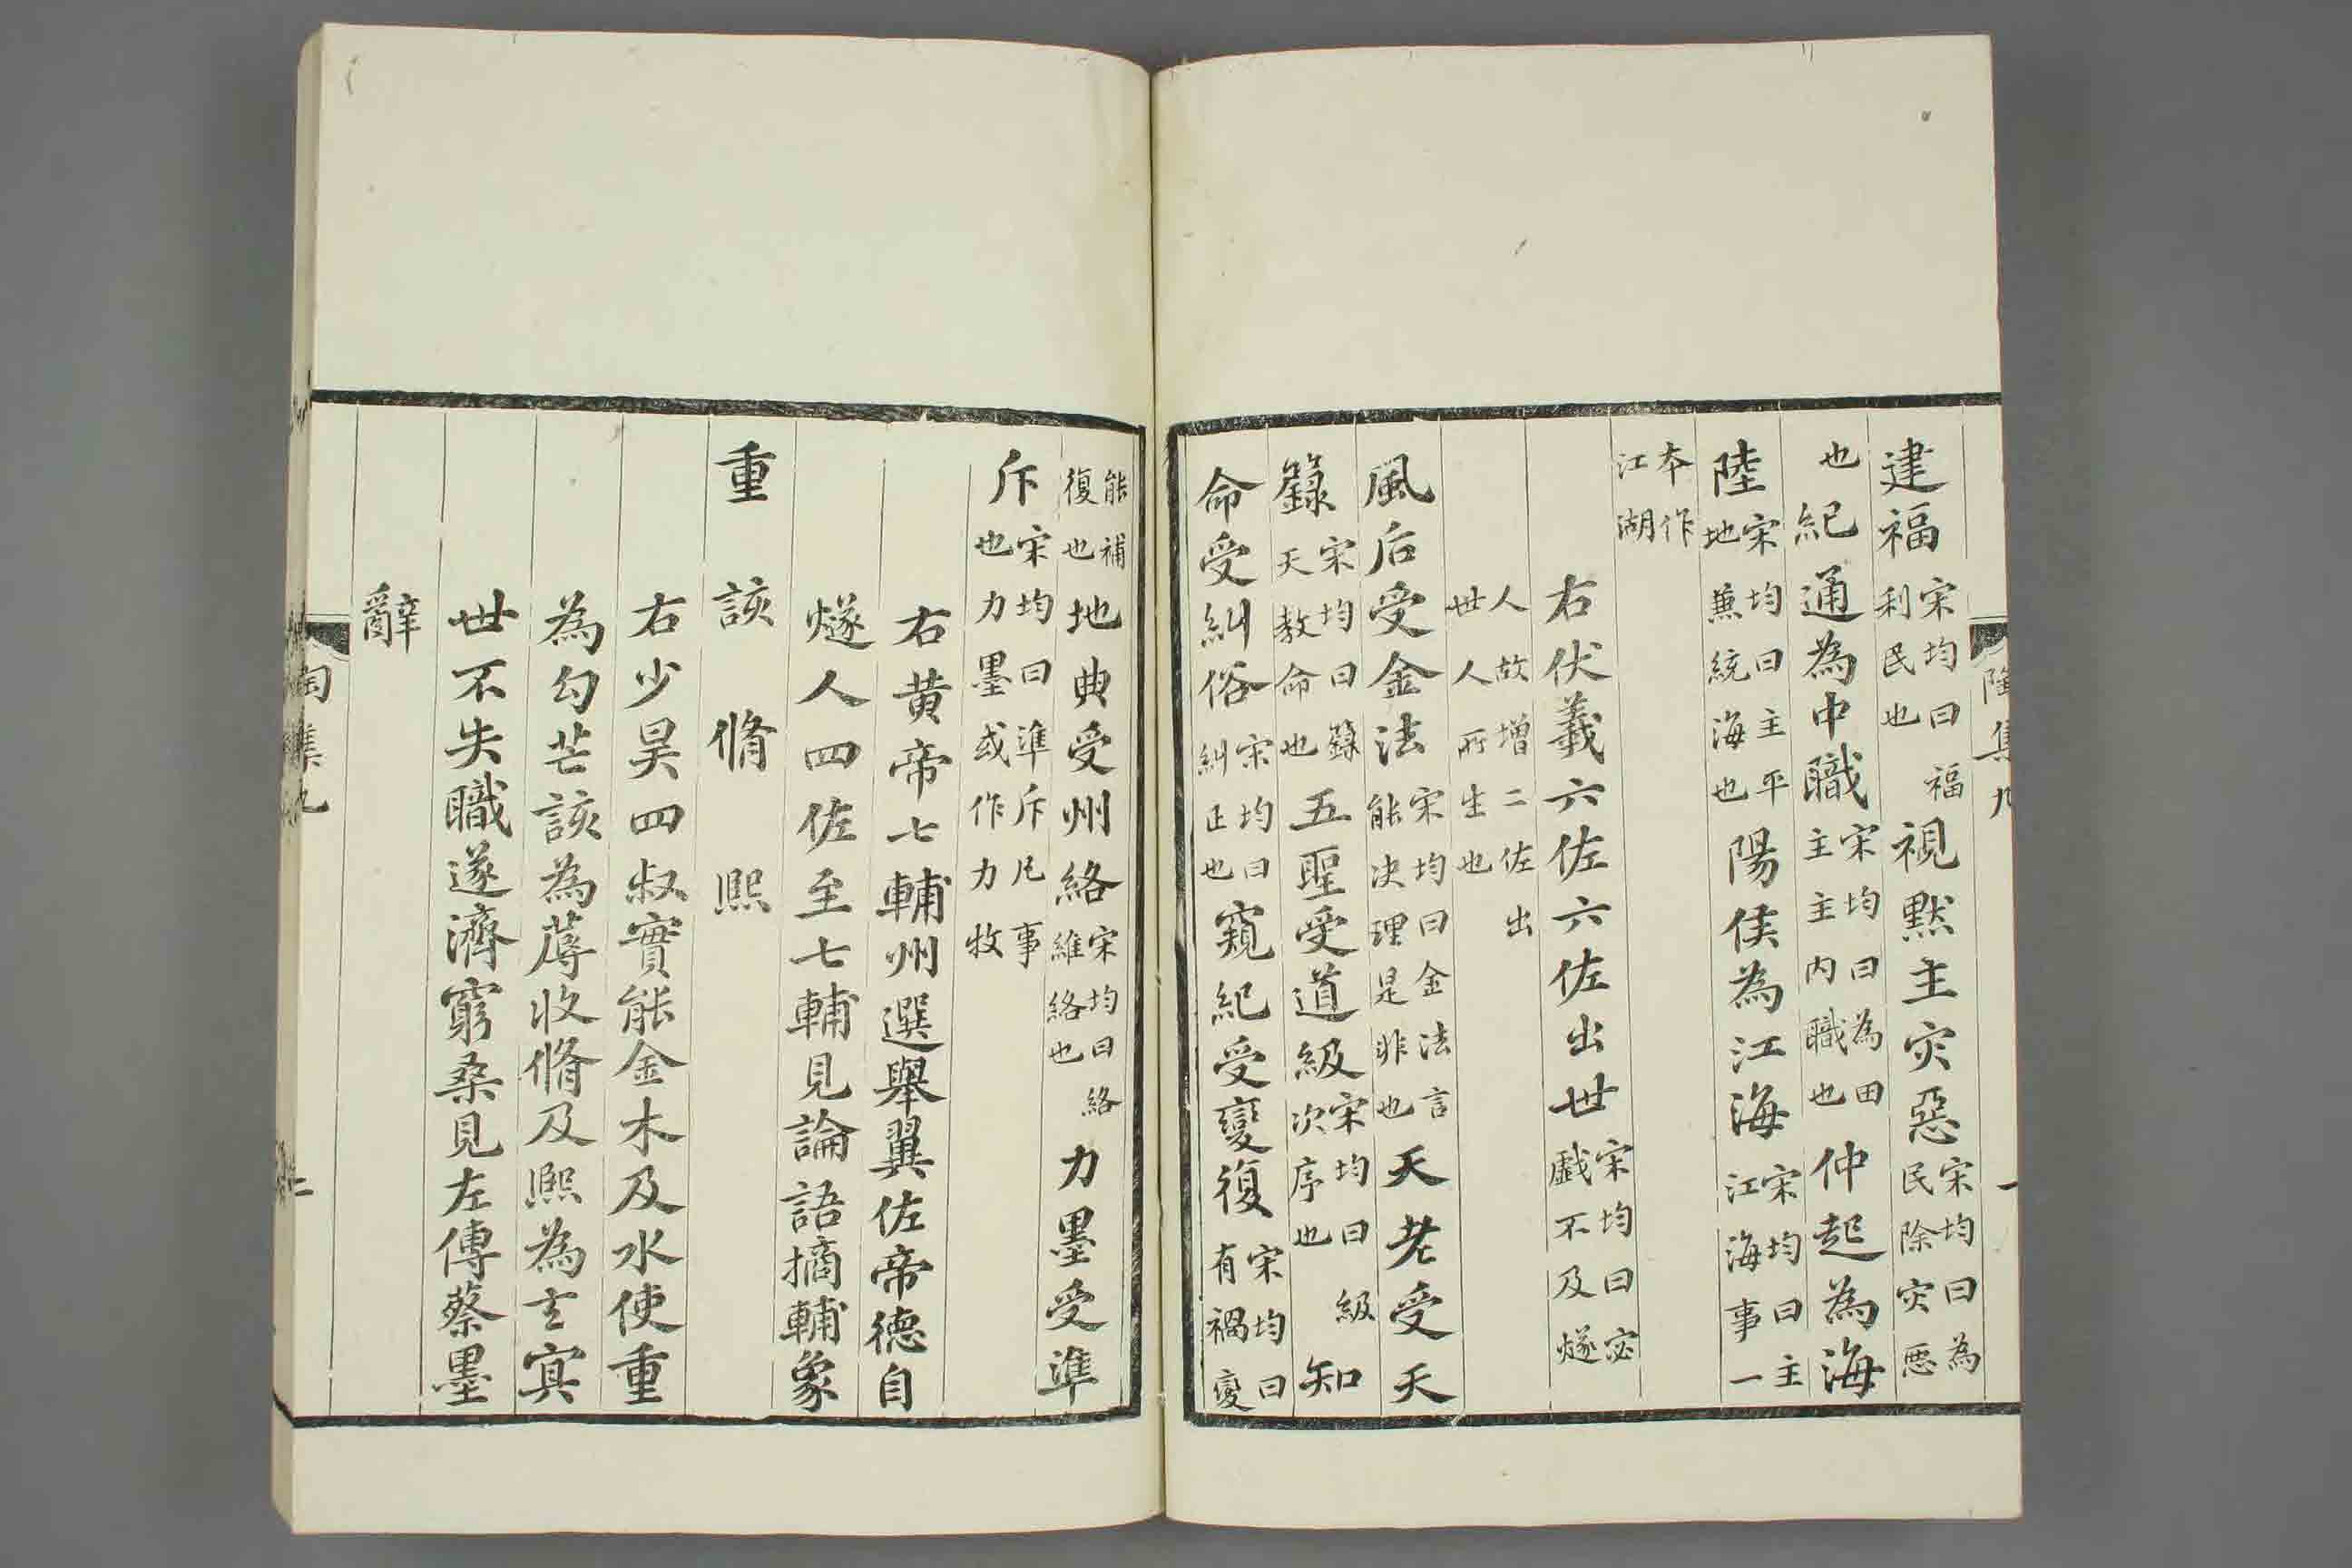 陶集九 一
建福宋均曰福利民也視默主灾惡宋均曰為民除灾惡
也紀通為中職宋均曰為田主主内職也仲起為海
陸宋均曰主平地兼統海也陽侯為江海宋均曰主江海事一
本作江湖
右伏羲六佐六佐出世宋均曰宓戲不及燧
人故增二佐出世人所生也
風后受金法宋均曰金法言能決理是非也天老受天
籙宋均曰籙天教命也五聖受道級宋均曰級次序也知
命受糾俗宋均曰糾正也窺紀受變復宋均曰有禍變
能補復也地典受州絡宋均曰絡維絡也力墨受準
斥宋均曰準斥凡事也力墨或作力牧
右黄帝七輔州選舉翼佐帝德自
燧人四佐至七輔見論語摘輔象
重 該 脩 熙
右少昊四叔實能金木及水使重
為勾芒該為蓐收脩及熙為玄冥
世不失職遂濟窮桑見左傳蔡墨
辭
陶集九 二